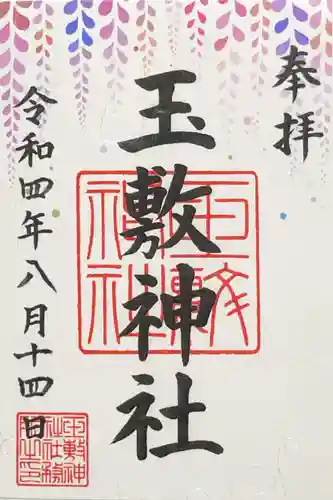 奉拝
玉敷神社
令和四年八月十四日
玉敷神社
玉敷神社社務所之印